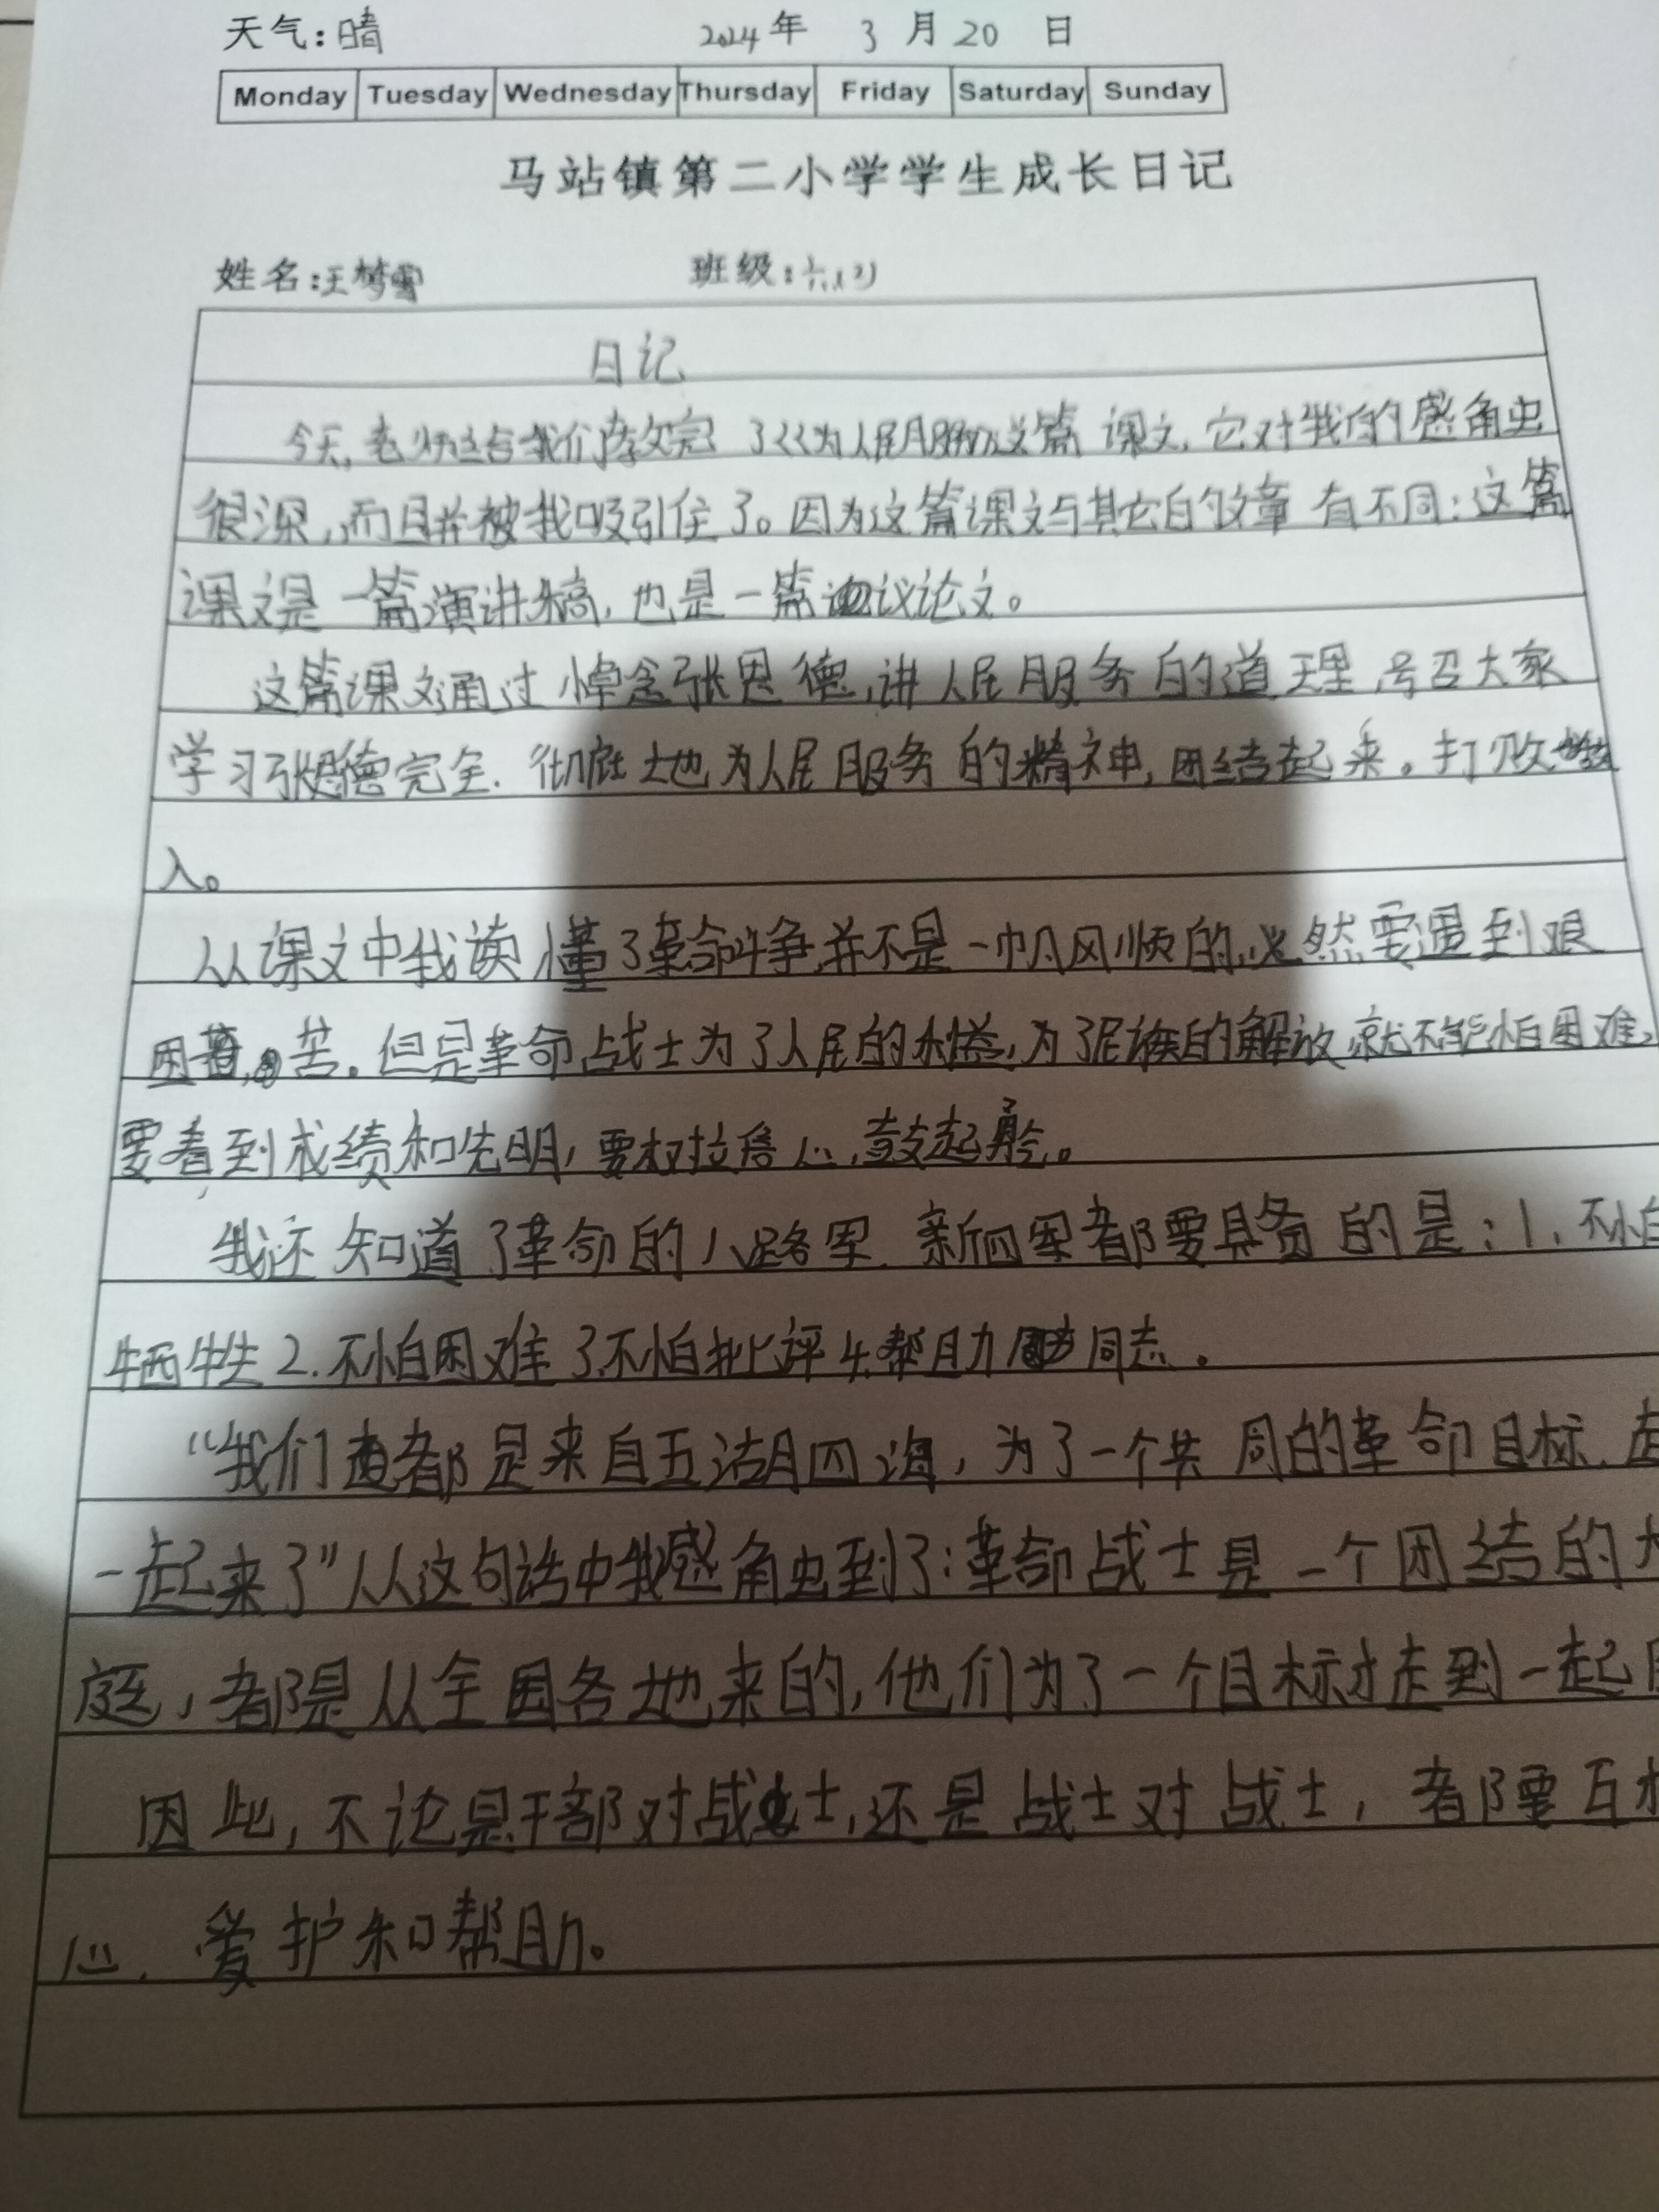 天气:晴 2024年 3 月 20 日
Monday Tuesday Wednesday Thursday Friday Saturday Sunday
马站镇第二小学学生成长日记
姓名:王梦雪 班级:六
日记
今天,老师给我们教完了《为人民服务》这篇课文,它对我的感触
很深,而且并被我吸引住了。因为这篇课文与其它的文章有不同:这篇
课文是一篇演讲稿,也是一篇议论文。
这篇课文通过悼念张思德,讲人民服务的道理,号召大家
学习张思德完全、彻底地为人民服务的精神,团结起来。打败
人。
从课文中我读懂了革命斗争并不是一帆风顺的,必然要遇到艰
困苦。但是革命战士为了人民的利益,为了民族的解放,就不能怕困难,
要看到成绩和光明,要树立信心,鼓起勇气。
我还知道了革命的八路军、新四军都要具备的是:1、不怕
牺牲2.不怕困难3.不怕批评4.帮助同志。
“我们都是来自五湖四海,为了一个共同的革命目标,走
一起来了”从这句话中我感触到了:革命战士是一个团结的大
庭,都是从全国各地来的,他们为了一个目标才走到一起
因此,不论是干部对战士,还是战士对战士,都要互相
心、爱护和帮助。